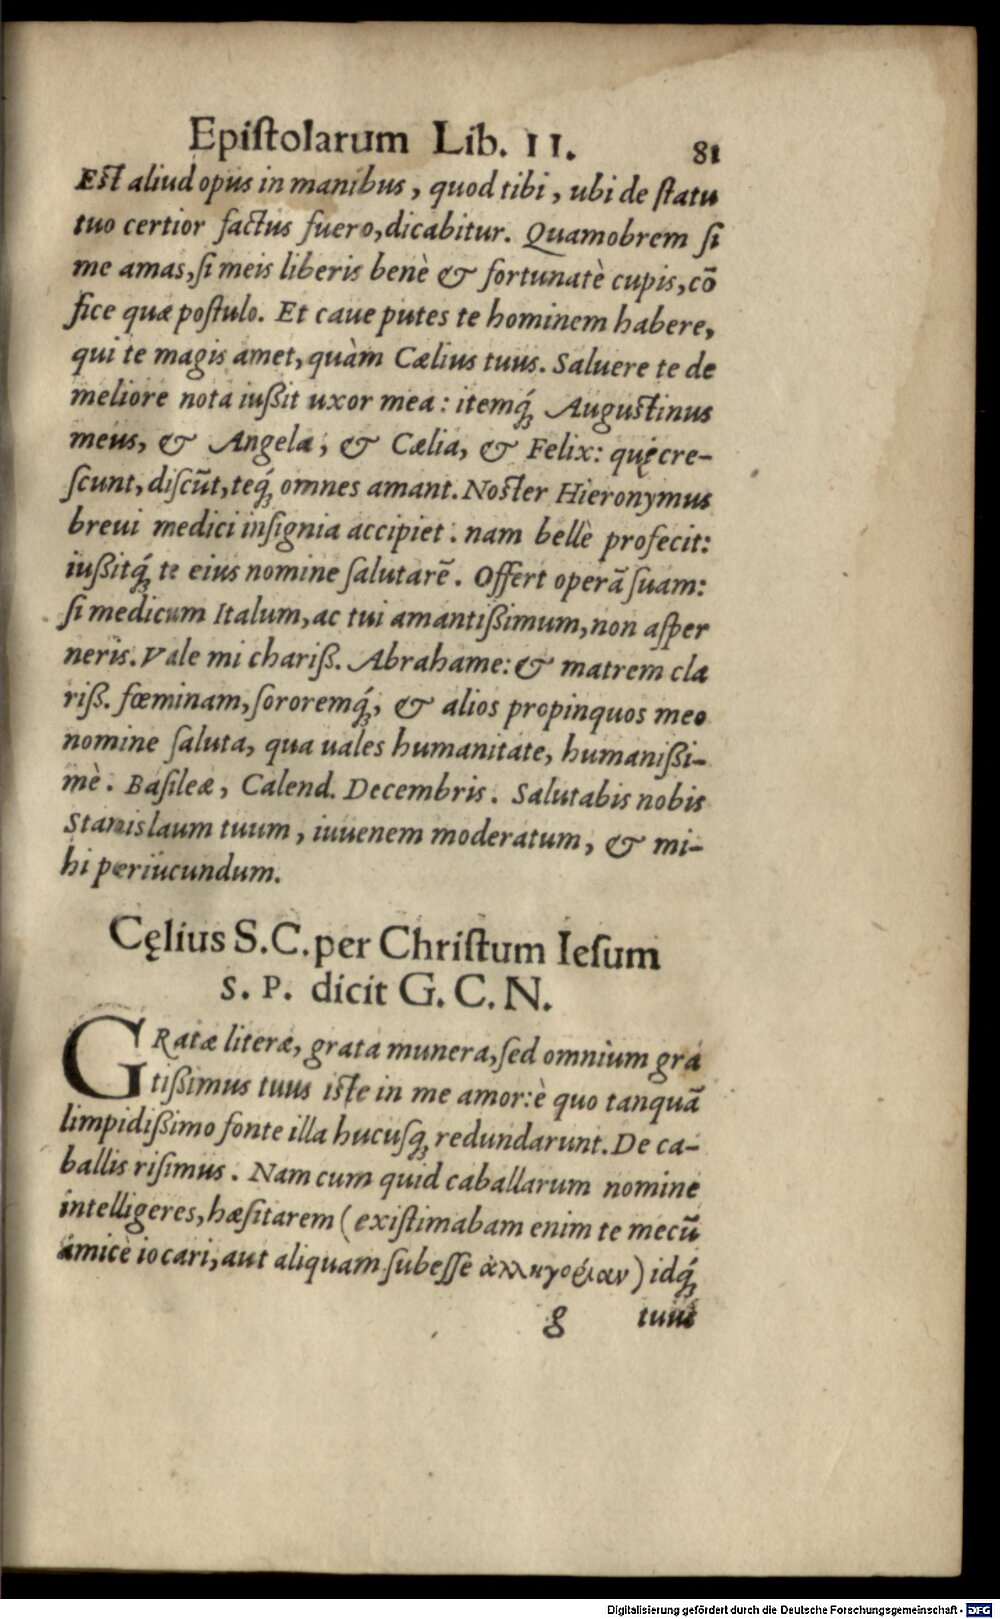 Epiſtolarum Lib. II. 81
Eſt aliud opus in manibus, quod tibi, ubi de ſtatu
tuo certior factus fuero, dicabitur. Quamobrem ſi
me amas, ſi meis liberis benè & fortunatè cupis, cō
fice quæ poſtulo. Et caue putes te hominem habere,
qui te magis amet, quàm Cælius tuus. Saluere te de
meliore nota iußit uxor mea: itemq́; Auguſtinus
meus, & Angela, & Cælia, & Felix: qui cre-
ſcunt, diſcūt, teq́; omnes amant. Noſter Hieronymus
breui medici inſignia accipiet: nam bellè profecit:
iußitq́; te eius nomine ſalutarē. Offert operā ſuam:
ſi medicum Italum, ac tui amantißimum, non aſper
neris. Vale mi chariß. Abrahame: & matrem cla
riß. fœminam, ſororemq́;, & alios propinquos meo
nomine ſaluta, qua uales humanitate, humanißi-
mè. Baſileæ, Calend. Decembris. Salutabis nobis
Stanislaum tuum, iuuenem moderatum, & mi-
hi periucundum.
Cęlius S. C. per Chriſtum Ieſum
S. P. dicit G. C. N.
GRatæ literæ, grata munera, ſed omnium gra
tißimus tuus iſte in me amor: è quo tanquā
limpidißimo fonte illa hucuſq; redundarunt. De ca-
ballis riſimus. Nam cum quid caballarum nomine
intelligeres, hæſitarem (exiſtimabam enim te mecū
amicè iocari, aut aliquam ſubeſſe ἀλληγορίαν) idq́;
g tuūt
Digitalisierung gefördert durch die Deutsche Forschungsgemeinschaft - DFG